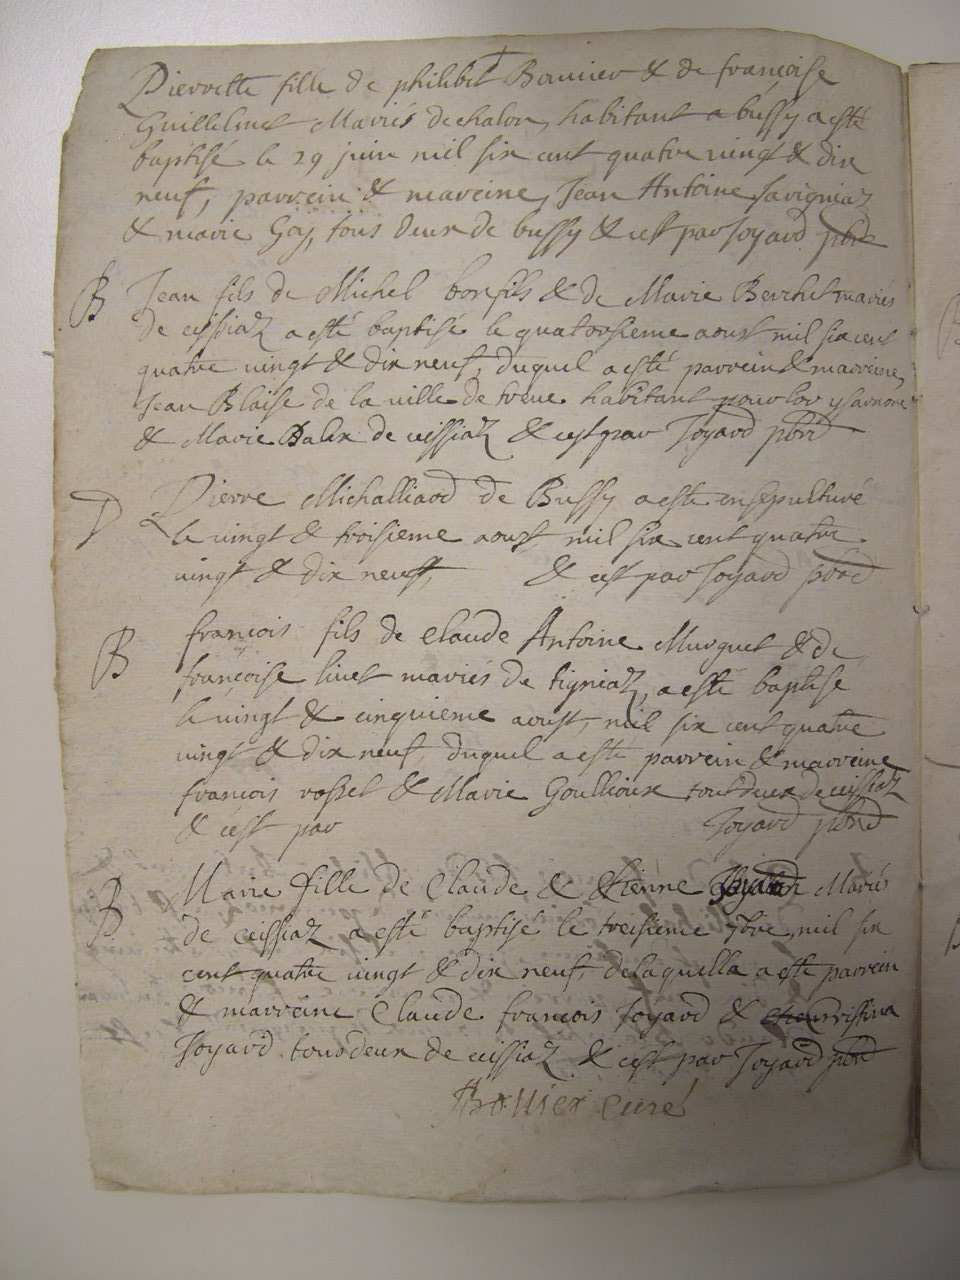 Pierrette fille de philibet Bouvier & de françoise
Guillelmet Mariés de chalon, habitant a bussy a esté
baptisé le 29 juin mil six cent quatre vingt & dix
neuf, parrein & mareine, Jean Antoine Savigniaz
& marie Gay, tous deux de bussy & cest par Joyard pbre
B Jean fils de Michel bonfils & de Marie Berchet mariés
de ceissiaz a esté baptisé le quatorsieme aoust mil six cent
quatre vingt & dix neuf, duquel a esté parrein & marreine,
Jean Blaise de la ville de treue habitant pour lor
& Marie Balex de ceissiaz & cest par Joyard pbre
D Pierre Michalliard de Bussy a esté ensepulturé
le vingt & troisieme aoust mil six cent quatre
vingt & dix neuff, & cest par Joyard pbre
B françois fils de Claude Antoine Murguet & de
françoise livet mariés de tigniaz, a esté baptise
le vingt & cinquieme aoust, mil six cent quatre
vingt & dix neuf, duquel a esté parrein & marreine
francois rosset & Marie Goullioux tout deux de ceissiaz
& cest par Joyard pbre
B Marie fille de Claude & Etienne Mariés
de ceissiaz a esté baptisé le treisieme 7bre, mil six
cent quatre vingt & dix neuf, de laquella a esté parrein
& marreine Claude françois Joyard &
Joyard tous deux de ceissiaz & cest par Joyard pbre
curé